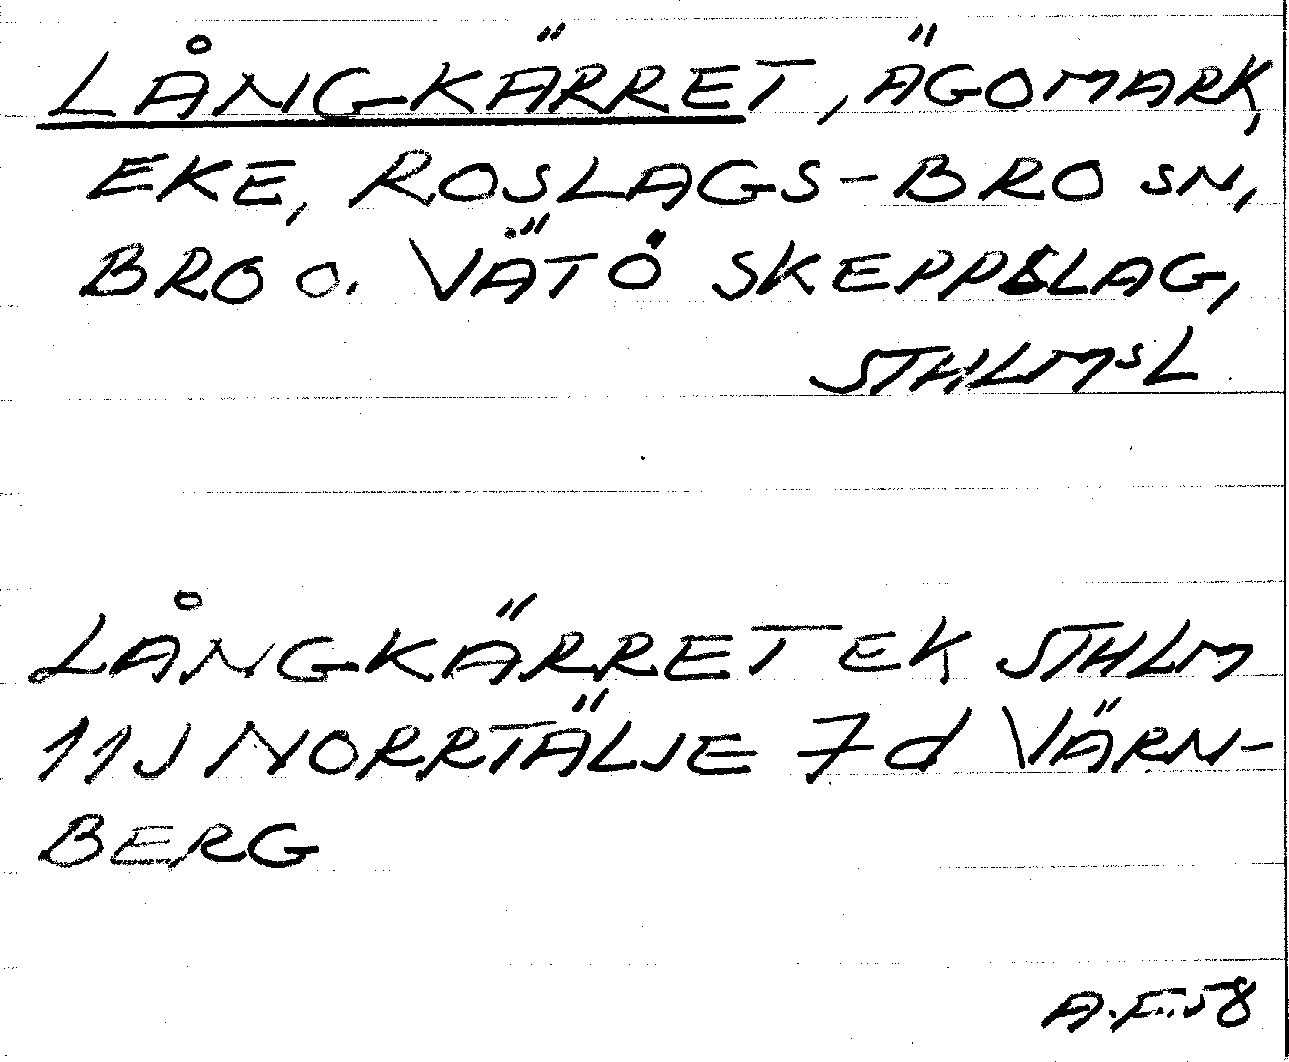 LÅNGKÄRRET, ÄGOMARK,
EKE, ROSLAGS-BRO SN,
BRO O. VÄTÖ SKEPPSLAG,
STHLMSL
LÅNGKÄRRET EK STHLM
11J NORRTÄLJE 7d VÄRN-
BERG
A.F. 58